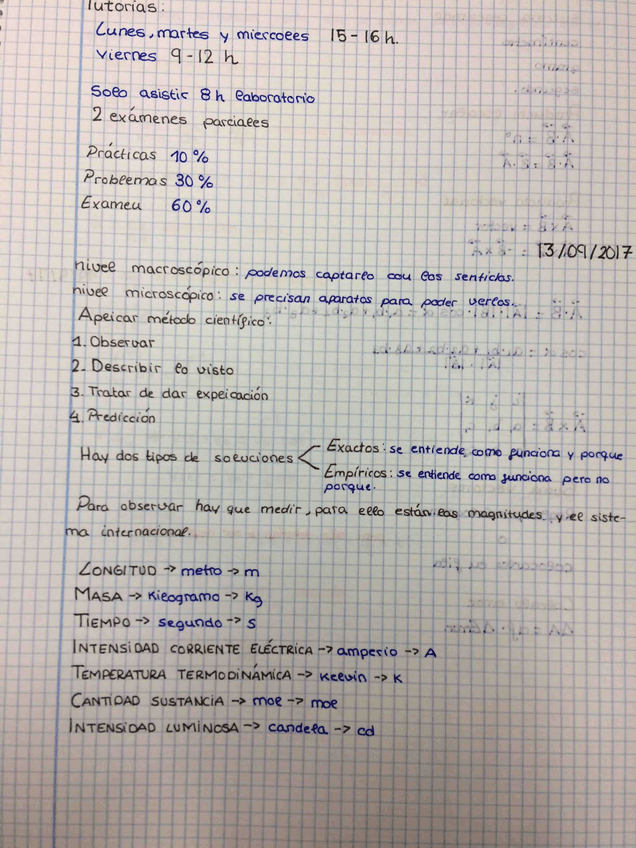 Tutorias:
Lunes, martes y miercoles 15-16 h.
viernes 9-12 h
Solo asistir 8 h laboratorio
2 exámenes parciales
Prácticas 10%
Problemas 30%
Examen 60%
13/09/2017
nivel macroscópico: podemos captarlo con los sentidos.
nivel microscópico: se precisan aparatos para poder verlos.
Aplicar método científico:
1. Observar
2. Describir lo visto
3. Tratar de dar explicación
4. Predicción
Hay dos tipos de soluciones
Exactos: se entiende como funciona y porque
Empíricos: se entiende como funciona pero no
porque.
Para observar hay que medir, para ello están las magnitudes y el siste-
ma internacional.
LONGITUD -> metro -> m
MASA -> Kilogramo -> Kg
TIEMPO -> segundo -> s
INTENSIDAD CORRIENTE ELÉCTRICA -> amperio -> A
TEMPERATURA TERMODINÁMICA -> Kelvin -> K
CANTIDAD SUSTANCIA -> mol -> mol
INTENSIDAD LUMINOSA -> candela -> cd